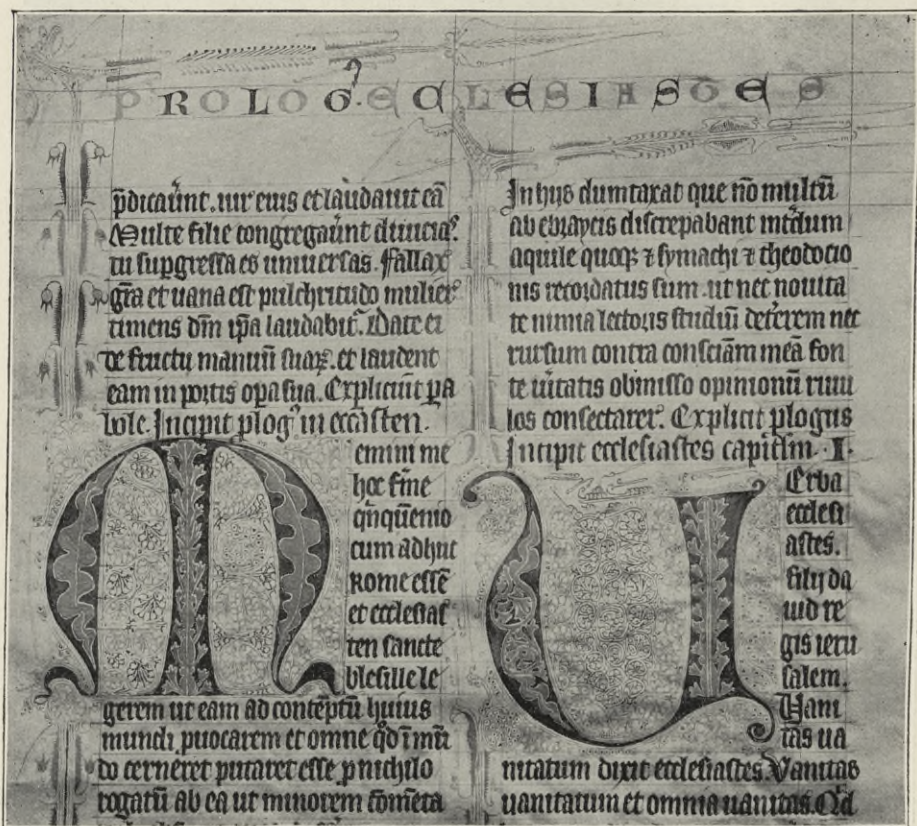 PROLOG9. ECLESIASTES
p̄dicaūnt. uir eius et laudauit eā
Multe filie congregaūnt diuicias.
tu sup̄gressa es uniuersas. Fallax
gr̄a et uana est pulchritudo mulier᷒
timens dm̄ ip̄a laudabit᷒. Date ei
de fructu manuū suaꝝ. et laudent
eam in portis opa sua. Expliciūt pa
bole. Incipit plog᷒ in ecc̄asten.
Memini me
hoc fīne
qn̄qūenio
cum adhuc
Rome essē
et ecclesias
ten sancte
blesille le
gerem ut eam ad conteptū huius
mundi puocarem et omne qd̄ ī mū
do cerneret putaret esse p nichilo
rogatū ab ea ut minorem com̄eta
In hijs dumtaxat que nō multū
ab ebraycis discrepabant int̄dum
aquile quoqꝫ ⁊ symachi ⁊ theodocio
nis recordatus sum. ut nec nouita
te nimia lectoris studiū det̄erem nec
rursum contra consciam̄ meā fon
te ūitatis obmisso opinionū riuu
los consectarer᷒. Explicit plogus
Incipit ecclesiastes capitlm̄. I.
Uerba
ecclesi
astes.
filij da
uid re
gis ieru
salem.
Vani
tas ua
nitatum dixit ecclesiastes. Vanitas
uanitatum et omnia uanitas. Qd̄